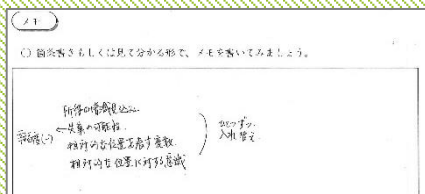 メモ
○ 箇条書きもしくは見て分かる形で、メモを書いてみましょう。
所得の増減見込み
←失業の可能性
相対的な位置を表す変数
相対的な位置に対する意識
ひとつずつ
入れ替え